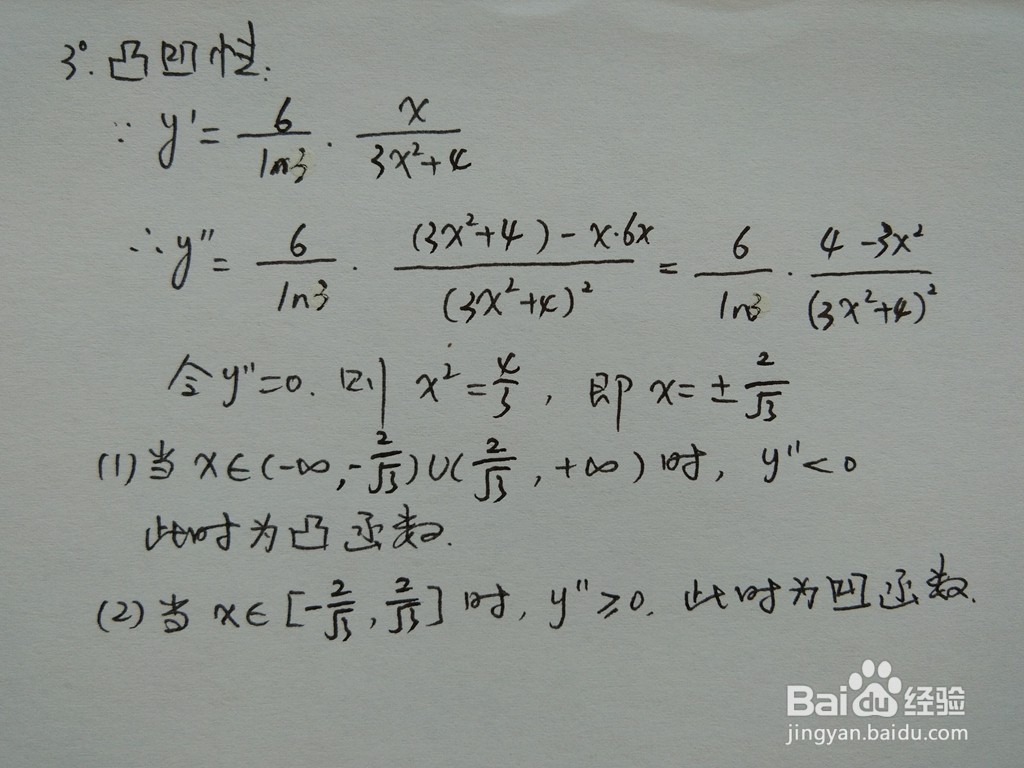 3°. 凸凹性.
∵ y' = 6/ln3 · x/(3x²+4)
∴ y'' = 6/ln3 · ((3x²+4) - x·6x)/(3x²+4)² = 6/ln3 · (4-3x²)/(3x²+4)²
令 y''=0. 则 x² = 4/3, 即 x = ± 2/√3
(1) 当 x∈(-∞, -2/√3)∪(2/√3, +∞) 时, y''<0
此时为凸函数.
(2) 当 x∈[-2/√3, 2/√3] 时, y''≥0. 此时为凹函数.
Baidu 经验
jingyan.baidu.com